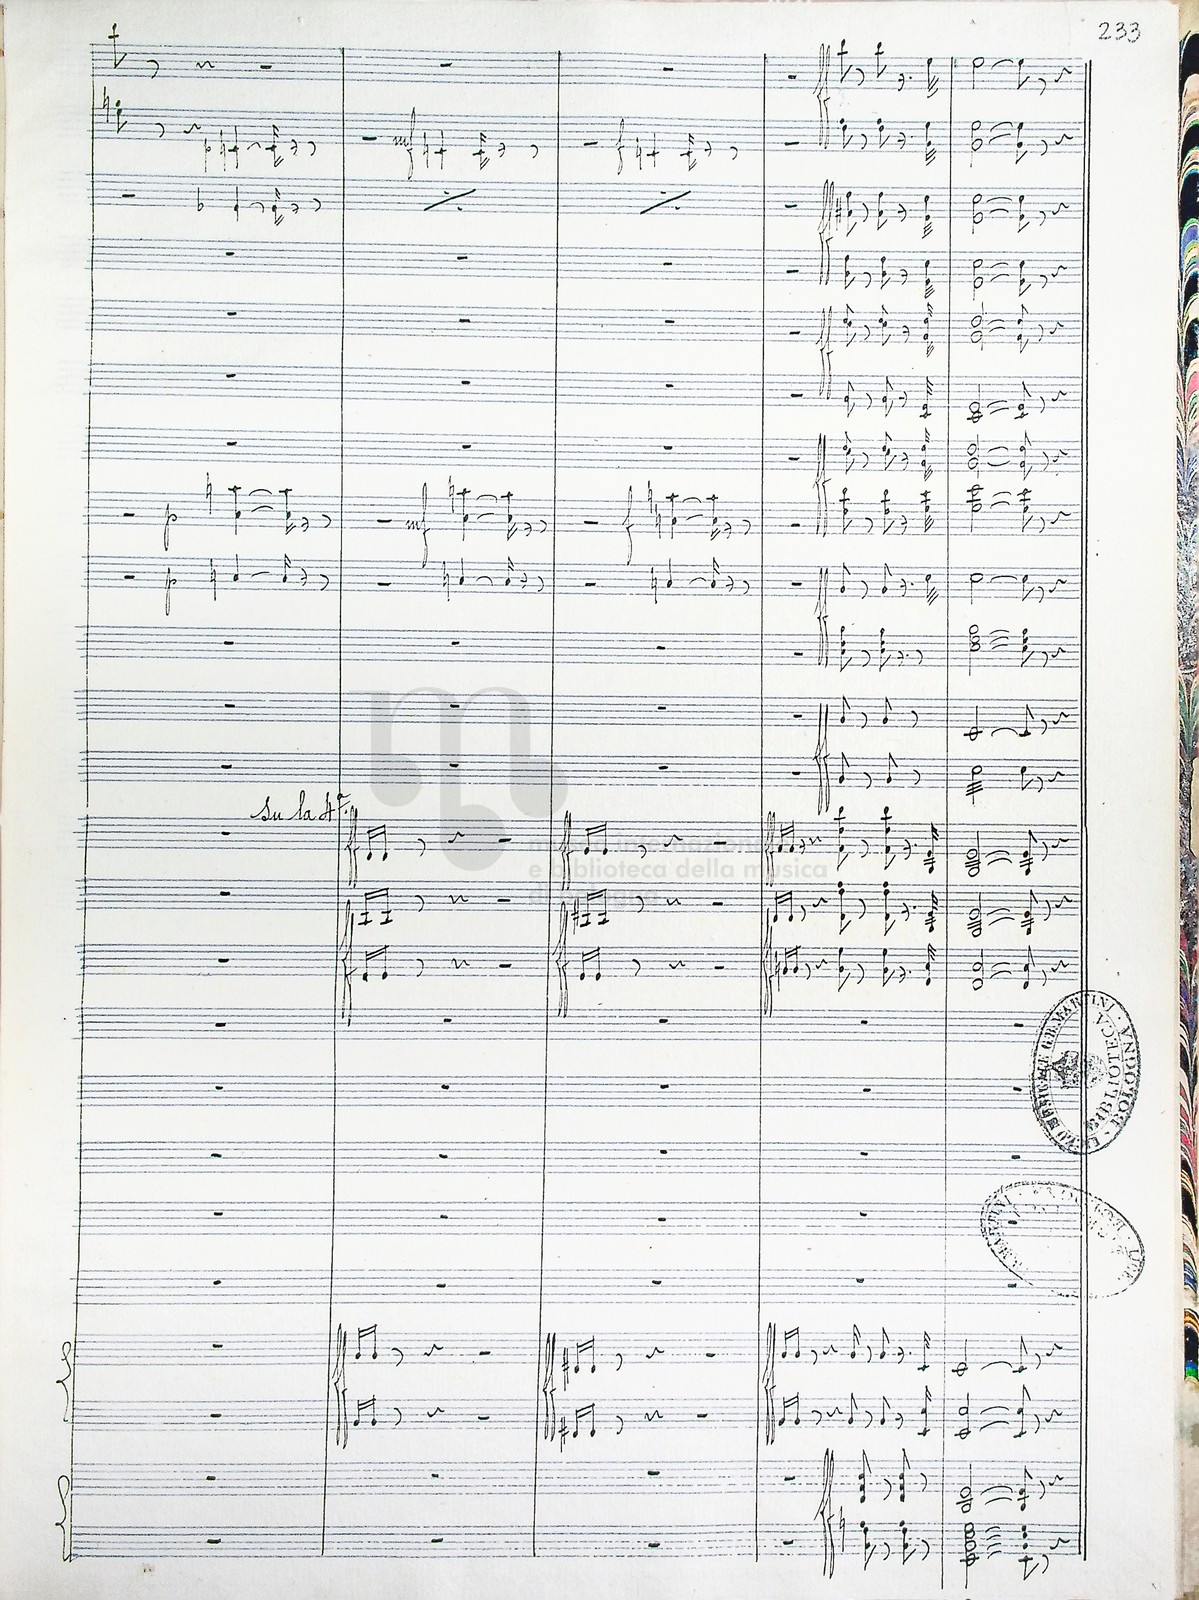 233
p
mf
f
p
mf
f
p
Su la 4ª
museo internazionale
e biblioteca della musica
di bologna
G.B. MARTINI · BOLOGNA
BIBLIOTECA
MARTINI